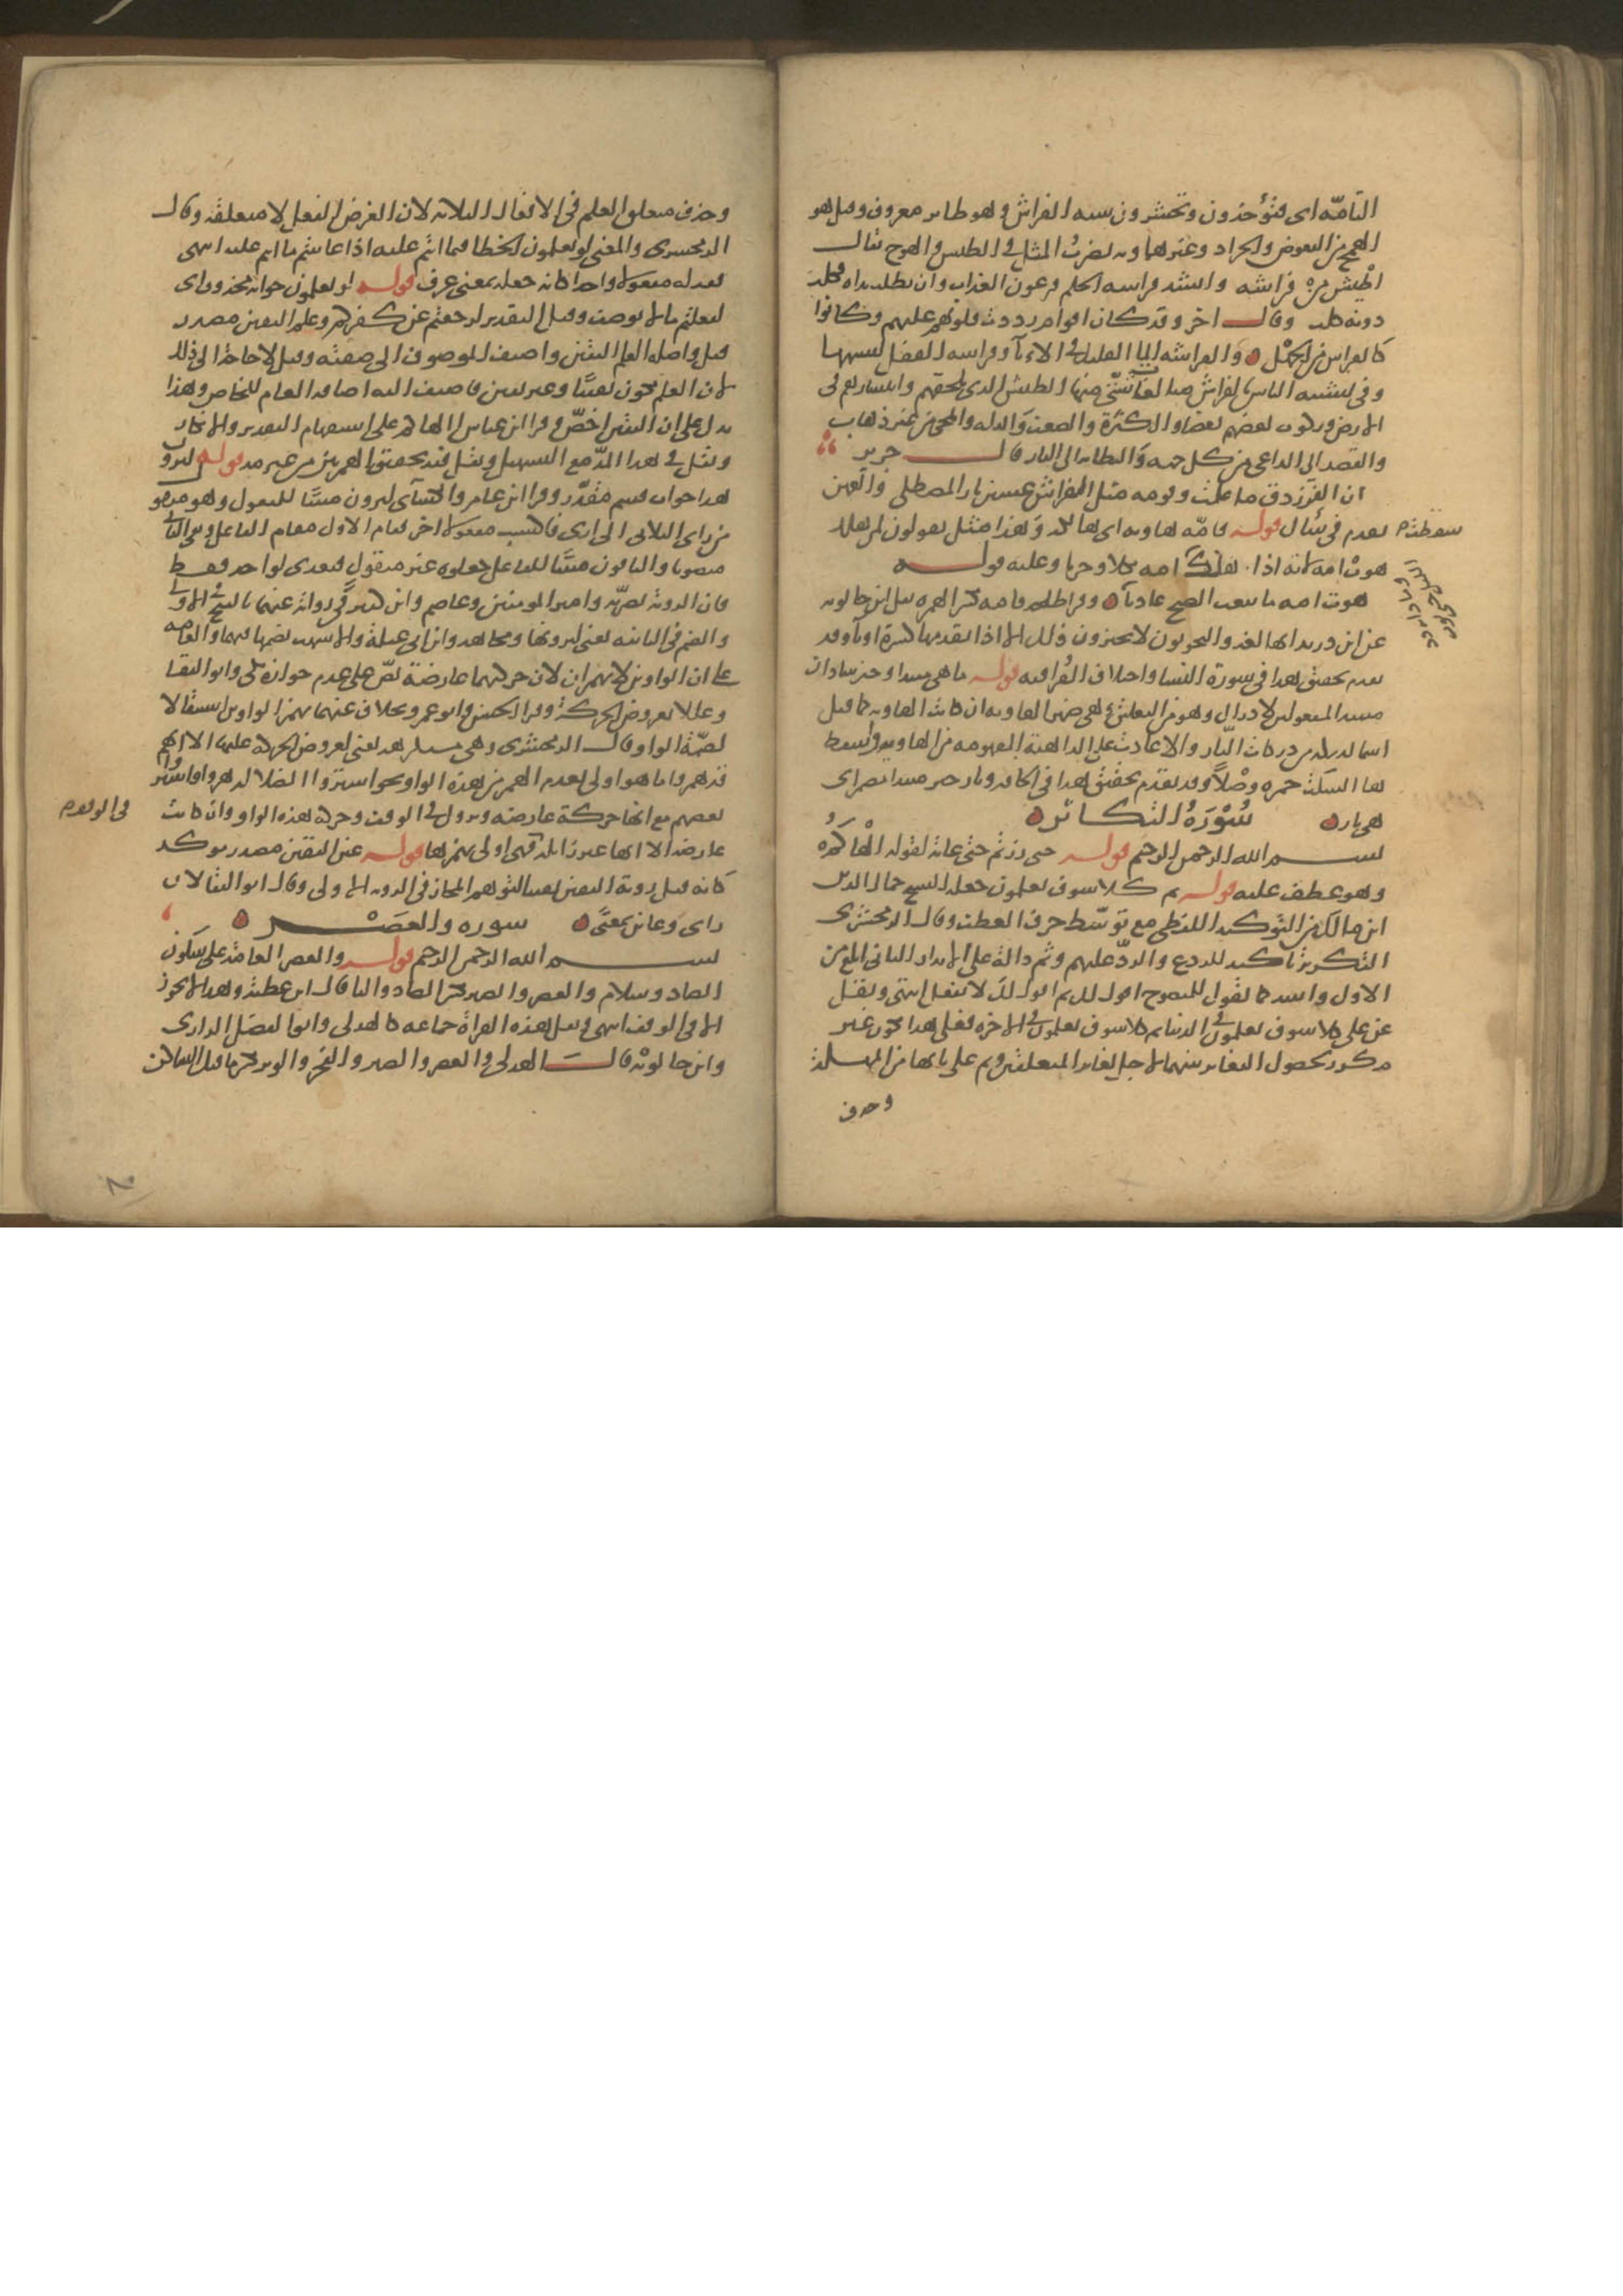 التامّة اى فتؤخذون وتحشرون شبه الفراش وهو طاير معروف وقيل هو
الهمج من البعوض والجراد وغيرهما وبه يضرب المثل فى الطيش والهوج يقال
اطيش من فراشه وانشد فراسه الحلم فرعون العذاب وان يطلب نداه فكلب
دونه كلب وقال اخر وقد كان اقوام رددت قلوبهم عليهم وكانوا
كالفراش من الجهل والفراشه الماء القليل فى الاناء وفراسه القفل لشبهها
وفى تشبيه الناس بالفراش مبالغات شتّى منها الطيش الذى يلحقهم وانتشارهم فى
الارض وركوب بعضهم بعضا والكثرة والضعف والذله والمجى من غير ذهاب
والقصد الى الداعى من كل جهه والتطاير الى النار قال جرير
ان الفرزدق ما علمت وقومه مثل الفراش غشين نار المصطلى والعهن
تقدم فى سأل قوله فامّه هاويه اى هالكه وهذا مثل يقولون لمن هلك
هوت امه لانه اذا هلك امه ثكلا وحزنا وعليه قوله
هوت امه ما يبعث الصبح غاديا وقرا طلحه فامه بكسر الهمزه نقل ابن خالويه
عن ابن دريد انها لغة والنحويون لا يجيزون ذلك الا اذا تقدمها كسرة او ياء وقد
تقدم تحقيق هذا فى سورة النسا واختلاف القرا فيه قوله ما هى مبتدا وخبر سادان
مسد المفعولين لادراك وهو من التعليق وهى ضمير الهاويه ان كانت الهاويه كما قيل
اسما لدركه من دركات النار والا عادت على الداهية المفهومه من الهاويه واسقط
هاء السكت حمزه وصلًا وقد تقدم تحقيق هذا فى الحاقه ونار خبر مبتدا مضمر اى
هى نار سُوْرَةُ التكاثر
بسم الله الرحمن الرحيم قوله حتى زرتم حتى غاية لقوله الْهَاكُم
وهو عطف عليه قوله ثم كلا سوف تعلمون جعله الشيخ جمال الدين
ابن مالك من التوكيد اللفظى مع توسّط حرف العطف وقال الزمخشرى
التكرير تاكيد للردع والردّ عليهم وثم دالة على ان الانذار الثانى ابلغ من
الاول واشد كما تقول للمنصوح اقول لك ثم اقول لك لا تفعل انتهى ونقل
عن على كلا سوف تعلمون فى الدنيا ثم كلا سوف تعلمون فى الاخره فعلى هذا يكون غير
مكرر لحصول التغاير بينهما لاجل تغاير المتعلقين وثم على بابها من المهلة
وحذف
سقطت م
وحذف متعلق العلم فى الافعال الثلاثه لان الغرض الفعل لا متعلقه وقال
الزمخشرى والمعنى لو تعلمون الخطا فيما انتم عليه اذا عاينتم ما انتم عليه انتهى
فقدر له مفعولا واحدا كانه جعله بمعنى عرف قوله لو تعلمون جوابه محذوف اى
لفعلتم ما لا يوصف وقيل التقدير لرجعتم عن كفركم وعلم اليقين مصدر
قيل واصله العلم اليقين واضيف الموصوف الى صفته وقيل لا حاجة الى ذلك
لان العلم يكون يقينًا وغير يقين فاضيف اليه اضافه العام للخاص وهذا
يدل على ان اليقين اخصّ وقرا ابن عباس االهاكم على استفهام التقدير والانكار
ونقل فى هذا المدّ مع التسهيل ونقل فيه تحقيق الهمزتين من غير مد قوله لترون
هذا جواب قسم مقدّر وقرا ابن عامر والكسآى لترون مبنيًا للمفعول وهو منقول
من راى الثلاثى الى ارى فاكتسب مفعولا اخر فقام الاول مقام الفاعل وبقى الثانى
منصوبا والباقون مبنيًا للفاعل جعلوه غير منقول فتعدى لواحد فقط
فان الروية بصريّه وامير المومنين وعاصم وابن كثير فى رواية عنهما بالفتح فى الاولى
والضم فى الثانيه يعنى لترونها ومجاهد وابن ابى عبلة والاشهب بضمها فيهما والعامه
على ان الواوين لا يهمزان لان حركتهما عارضة نصّ على عدم جوازه مكى وابو البقا
وعللا بعروض الحركة وقرا الحسن وابو عمرو بخلاف عنهما بهمز الواوين استثقالا
لضمّة الواو وقال الزمخشرى وهى مستكرهه يعنى لعروض الحركة عليها الا انهم
قد همزوا ما هو اولى بعدم الهمز من هذه الواو نحو اشتروا الضلاله همز واو اشتروا
بعضهم مع انها حركة عارضه وتزول فى الوقف وحركة هذه الواو وان كانت
عارضه الا انها غير زايله فهى اولى بهمزها قوله عين اليقين مصدر موكد
كانه قيل روية اليقين نفيا لتوهم المجاز فى الرويه الاولى وقال ابو البقا لان
راى وعاين بمعنًى سوره والعصر
بسم الله الرحمن الرحيم قوله والعصر العامّة على سكون
الصاد وسلام والعصر والصبر بكسر الصاد والبا قال ابن عطية وهذا لا يجوز
الا فى الوقف انتهى ونقل هذه القراة جماعه كالهذلى وابو الفضل الرازى
وابن خالويه قال الهذلى والعصر والصبر والفجر والوتر بكسر ما قبل الساكن